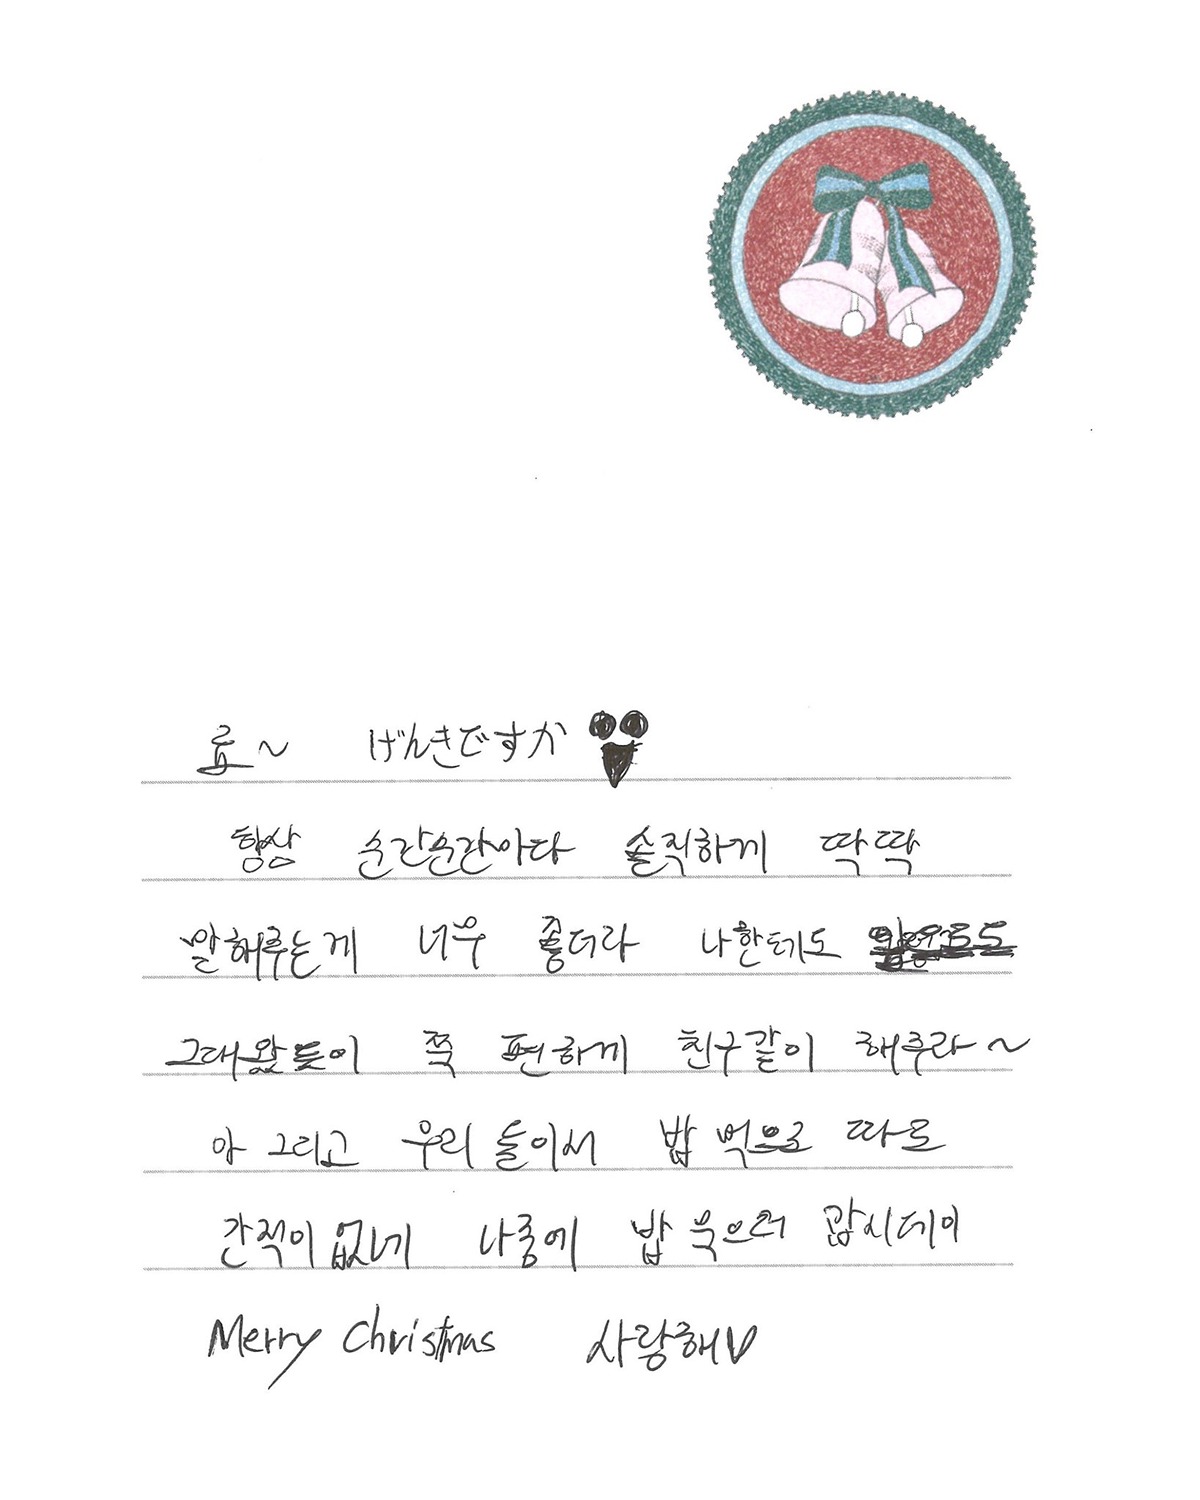 료~ げんきですか
항상 순간순간마다 솔직하게 딱딱
말해주는게 너무 좋더라 나한테도
그대왔듯이 쭉 편하게 친구같이 해주라~
아 그리고 우리 둘이서 밥 먹으로 따로
간적이 없네 나중에 밥 묵으러 갑시데이
Merry Christmas 사랑해♡